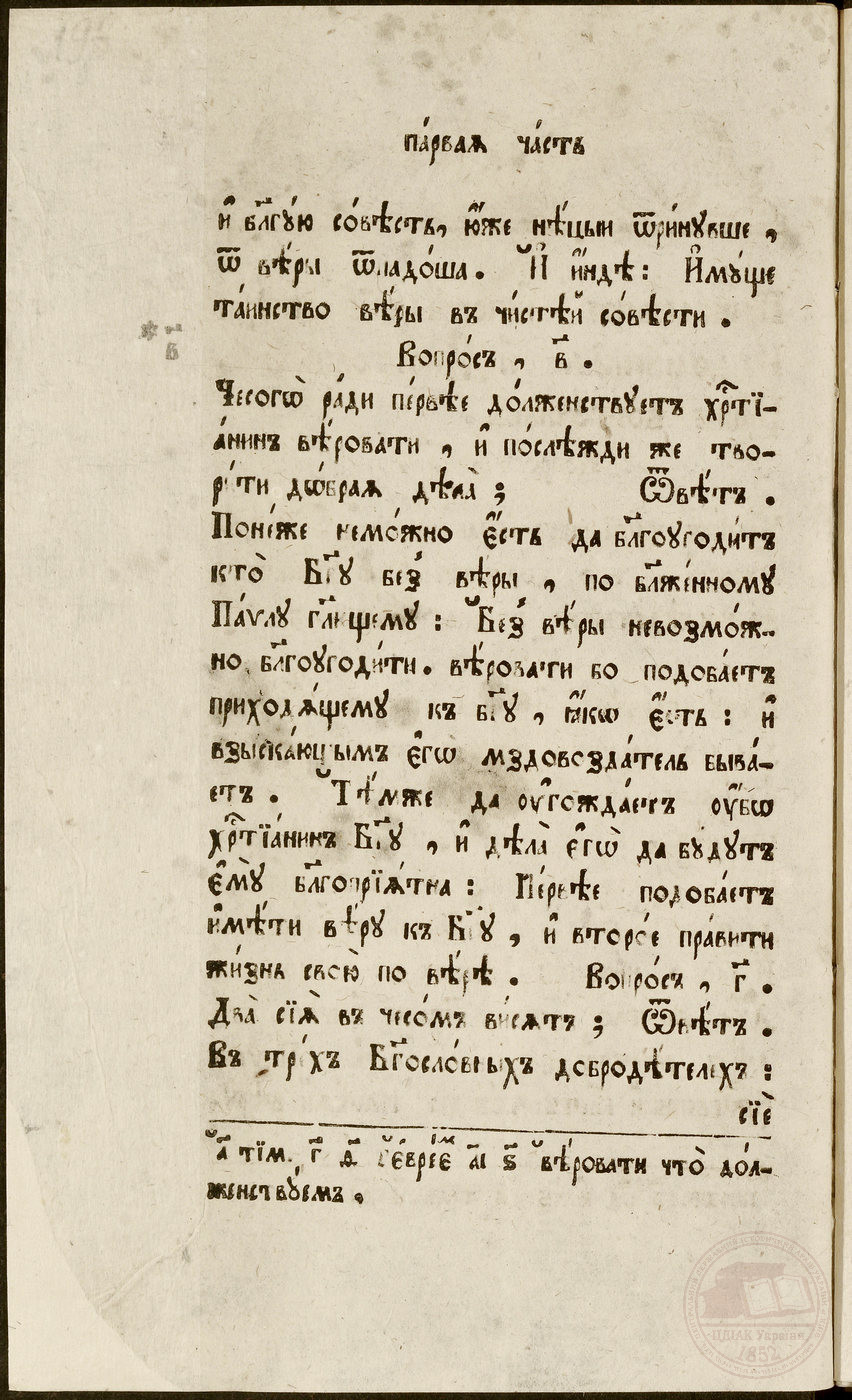 па́рваѧ ча́сть
и҆ бл҃гу́ю со́вѣсть, ю҆́же нѣ́цыи ѿри́нувше ,
ѿ вѣ́ры ѿпадо́ша . И҆ и҆́ндѣ : И҆му́ще
та́инство вѣ́ры въ чи́стѣй со́вѣсти .
* в҃
Вопро́съ , в҃ .
Чесогѡ̀ ра́ди пе́рвѣе до́лженствуетъ хр҇тї-
а́нинъ вѣ́ровати , и҆ по́слѣжди же тво-
ри́ти дѡ́браѧ дѣла̀ ; Ѿвѣ́тъ .
Поне́же немо́жно є҆́сть да бл҃гоугоди́тъ
кто̀ Бг҃у без̾ вѣ́ры , по бл҃же́нному
Па́ѵлу гл҃ющему : Без̾ вѣ́ры невозмо́ж-
но бл҃гоугоди́ти . вѣ́ровати бо подоба́етъ
приходѧ́щему къ бг҃у , ꙗ҆́кѡ є҆́сть : и҆
взыска́ющымъ є҆гѡ̀ мздовозда́тель быва́-
етъ . Тѣ́мже да оу҆гожда́етъ оу҆́бѡ
хр҇тїа́нинъ Бг҃у , и҆ дѣла̀ є҆гѡ̀ да бу́дутъ
є҆мꙋ̀ бл҃гопрїѧ́тна : Пе́рвѣе подоба́етъ
и҆мѣ́ти вѣ́ру къ Бг҃у , и҆ второ́е пра́вити
жи́знь свою̀ по вѣ́рѣ . Вопро́съ , г҃ .
Два̀ сїѧ̀ въ чесо́мъ ви́сѧтъ ; Ѿвѣ́тъ .
Въ трі́хъ Бг҃осло́вныхъ добродѣ́телехъ :
сїѐ
а҃ тїм. г҃ д҃ є҆врее҆ аі҃ ѕ҃ вѣ́ровати что̀ до́л-
женствуемъ .
ЦДІАК України
1852